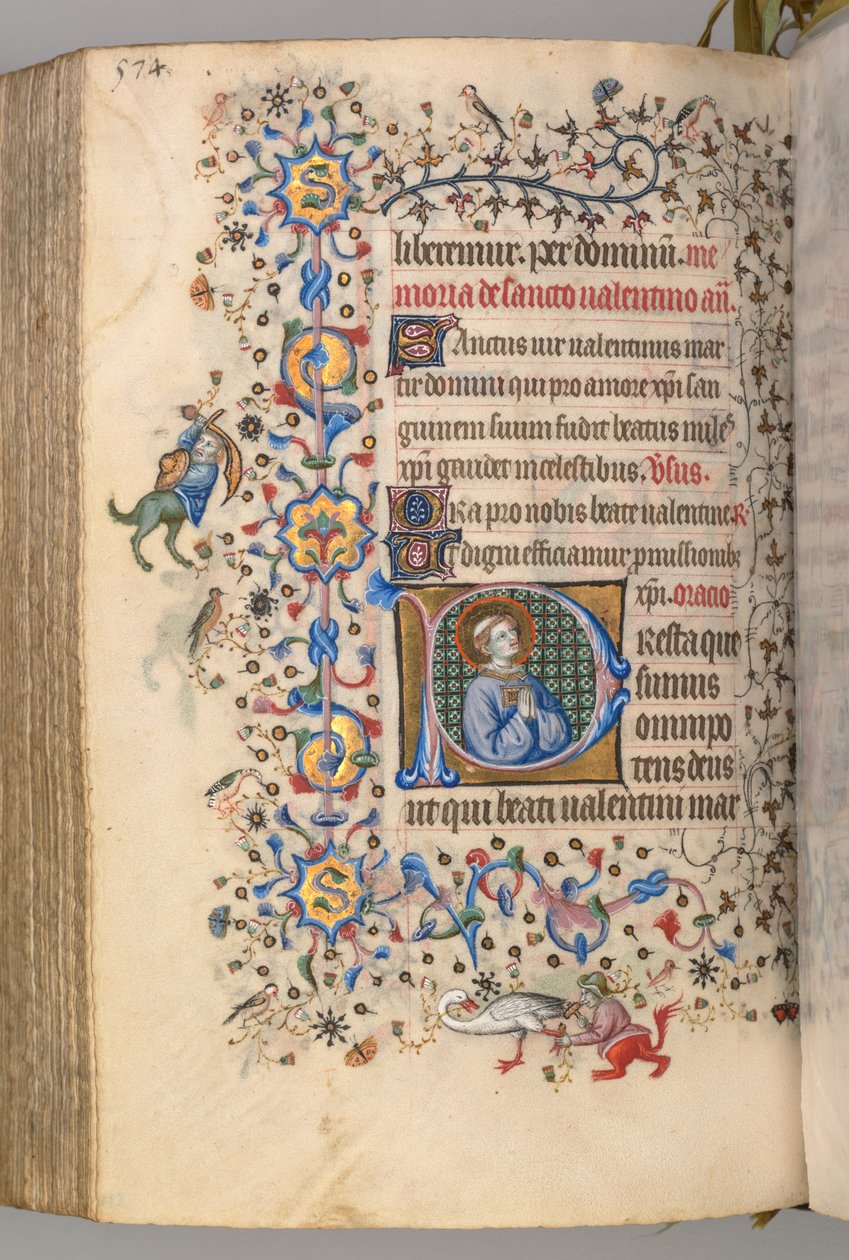 574.
S
liberemur. per dominū. me
moria de sancto ualentino añ.
Sanctus uir ualentinus mar
tir domini qui pro amore xp̄i san
guinem suum fudit beatus miles
xp̄i gaudet in celestibus. v̄sus.
Ora pro nobis beate ualentine. R.
Ut digni efficiamur p̄missionibz
xp̄i. oracio
Presta que
sumus
omnipo
tens deus
ut qui beati ualentini mar
S